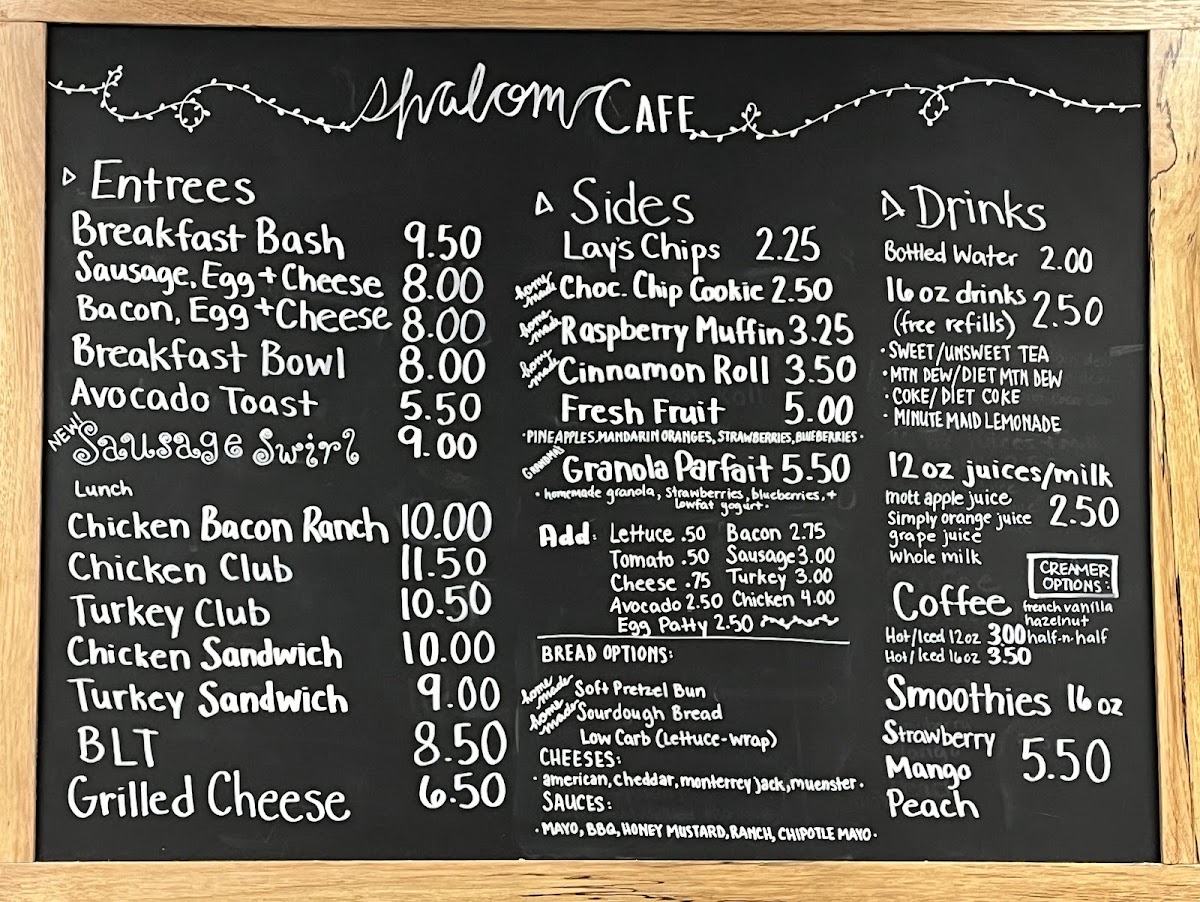 shalom CAFE
Entrees
Breakfast Bash 9.50
Sausage, Egg + Cheese 8.00
Bacon, Egg + Cheese 8.00
Breakfast Bowl 8.00
Avocado Toast 5.50
NEW! Sausage Swirl 9.00
Lunch
Chicken Bacon Ranch 10.00
Chicken Club 11.50
Turkey Club 10.50
Chicken Sandwich 10.00
Turkey Sandwich 9.00
BLT 8.50
Grilled Cheese 6.50
Sides
Lay's Chips 2.25
home made Choc. Chip Cookie 2.50
home made Raspberry Muffin 3.25
home made Cinnamon Roll 3.50
Fresh Fruit 5.00
· PINEAPPLES, MANDARIN ORANGES, STRAWBERRIES, BLUEBERRIES ·
GRANDMA'S Granola Parfait 5.50
· homemade granola, strawberries, blueberries, +
lowfat yogurt ·
Add: Lettuce .50 Bacon 2.75
Tomato .50 Sausage 3.00
Cheese .75 Turkey 3.00
Avocado 2.50 Chicken 4.00
Egg Patty 2.50
BREAD OPTIONS:
home made Soft Pretzel Bun
home made Sourdough Bread
Low Carb (Lettuce-wrap)
CHEESES:
· american, cheddar, monterrey jack, muenster ·
SAUCES:
· MAYO, BBQ, HONEY MUSTARD, RANCH, CHIPOTLE MAYO ·
Drinks
Bottled Water 2.00
16 oz drinks 2.50
(free refills)
· SWEET/UNSWEET TEA
· MTN DEW/DIET MTN DEW
· COKE/DIET COKE
· MINUTE MAID LEMONADE
12 oz juices/milk
mott apple juice 2.50
Simply orange juice
grape juice
whole milk
CREAMER
OPTIONS:
french vanilla
hazelnut
half-n-half
Coffee
Hot/Iced 12oz 3.00
Hot/Iced 16oz 3.50
Smoothies 16 oz
Strawberry
Mango 5.50
Peach